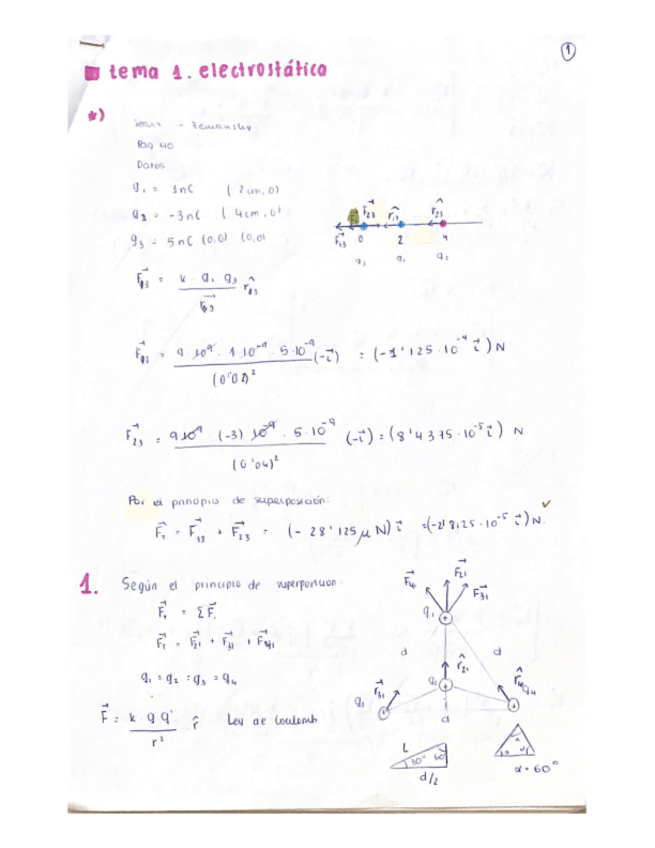 1
tema 1. electrostática
*)
Sears - Zemansky
Pag 40
Datos
q₁ = 1nC (2cm, 0)
q₂ = -3nC (4cm, 0)
q₃ = 5nC (0,0) (0,0)
F₂₃ r̂₁₃ r̂₂₃
F₁₃ 0 2 4
q₃ q₁ q₂
F⃗₁₃ = k · q₁ q₃ / r⃗₁₃ r̂₁₃
F⃗₁₃ = 9·10⁹ · 1·10⁻⁹ · 5·10⁻⁹ / (0'02)² (-i⃗) = (-1'125·10⁻⁴ i⃗) N
F⃗₂₃ = 9·10⁹ · (-3)·10⁻⁹ · 5·10⁻⁹ / (0'04)² (-i⃗) = (8'4375·10⁻⁵ i⃗) N
Por el principio de superposición:
F⃗ₜ = F⃗₁₃ + F⃗₂₃ = (-28'125 μN) i⃗ = (-2'8125·10⁻⁵ i⃗) N.
1. Según el principio de superposición:
F⃗ₜ = ΣF⃗ᵢ
F⃗ₜ = F⃗₂₁ + F⃗₃₁ + F⃗₄₁
q₁ = q₂ = q₃ = q₄
F⃗ = k · q q' / r² r̂ Ley de Coulomb
F⃗₄₁ F⃗₂₁ F⃗₃₁
q₁ +
d d
q₂ + r̂₂₁
q₃ r̂₃₁ r̂₄₁ q₄
d
L 30° 60°
d/2
α = 60°